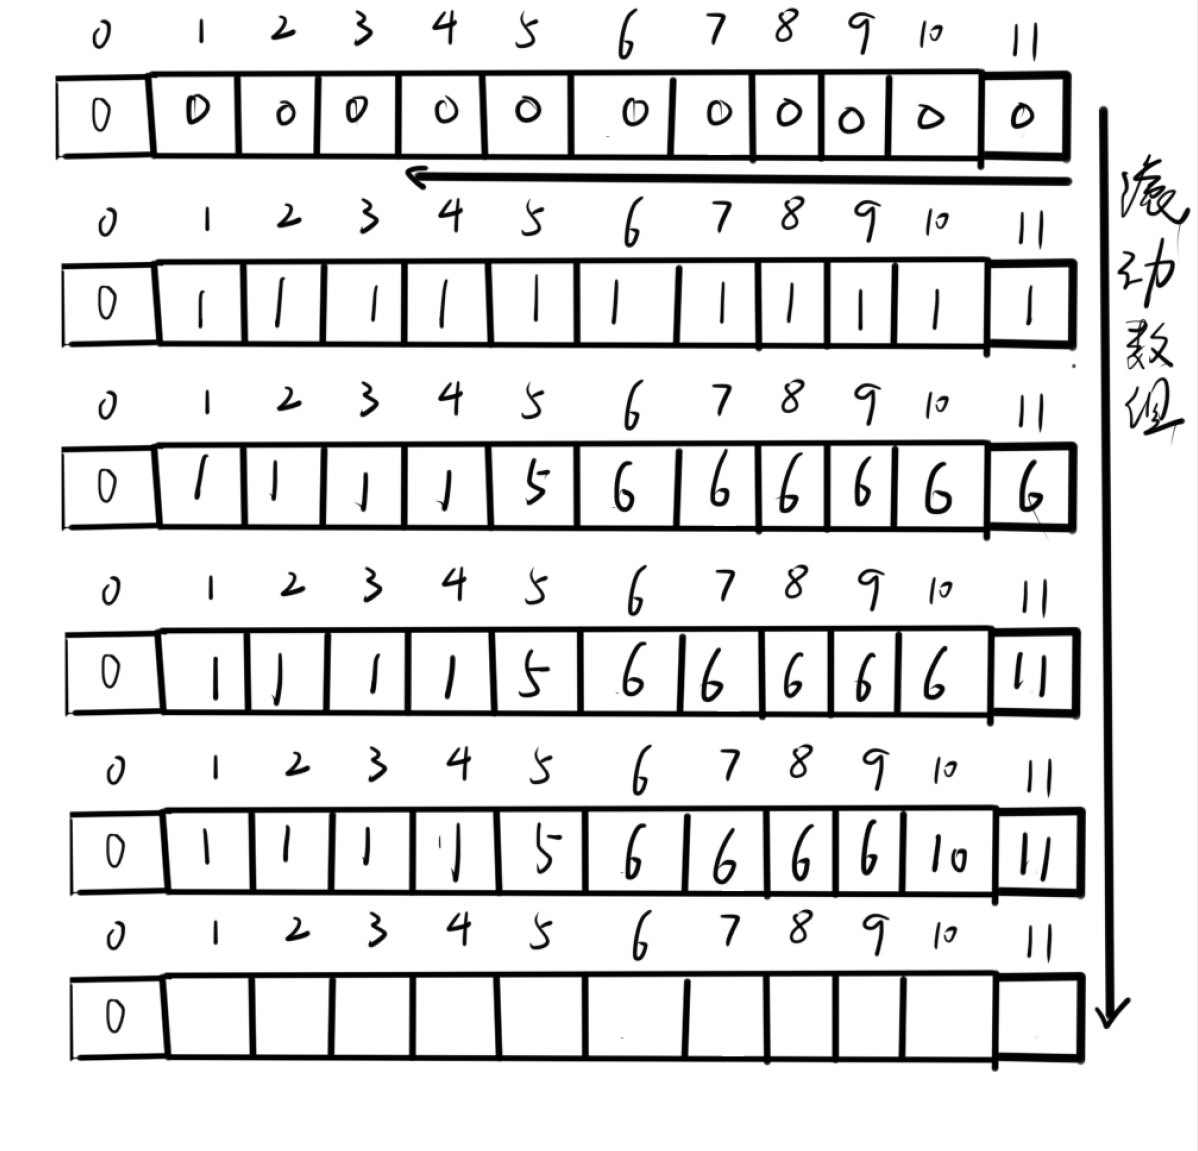 0 1 2 3 4 5 6 7 8 9 10 11
0 0 0 0 0 0 0 0 0 0 0 0
0 1 2 3 4 5 6 7 8 9 10 11
0 1 1 1 1 1 1 1 1 1 1 1
0 1 2 3 4 5 6 7 8 9 10 11
0 1 1 1 1 5 6 6 6 6 6 6
0 1 2 3 4 5 6 7 8 9 10 11
0 1 1 1 1 5 6 6 6 6 6 11
0 1 2 3 4 5 6 7 8 9 10 11
0 1 1 1 1 5 6 6 6 6 10 11
0 1 2 3 4 5 6 7 8 9 10 11
0
滚动数组